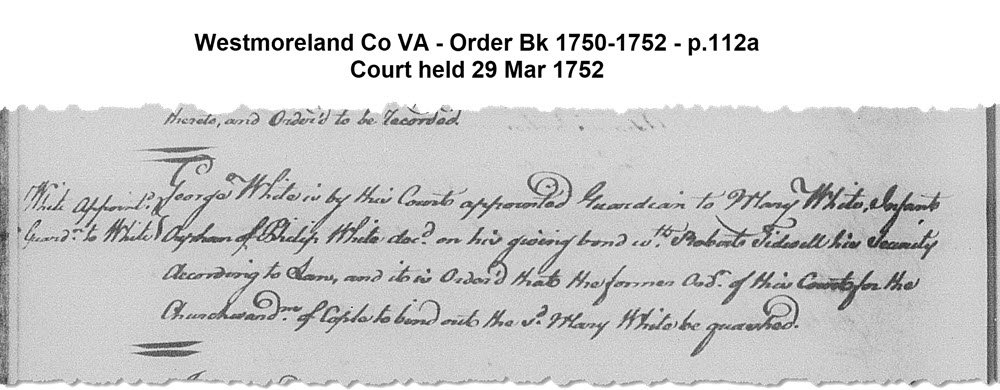 Westmoreland Co VA - Order Bk 1750-1752 - p.112a
Court held 29 Mar 1752
thereto, and Order'd to be Recorded.
White Appoint.d
Guard.n to White
George White is by this Court appointed Guardian to Mary White, Infant
Orphan of Philip White dec.d on his giving bond w.th Robert Tidwell his Security
According to Law, and it is Order'd that the former Ord.r of this Court for the
Churchward.ns of Cople to bind out the s.d Mary White be quashed.